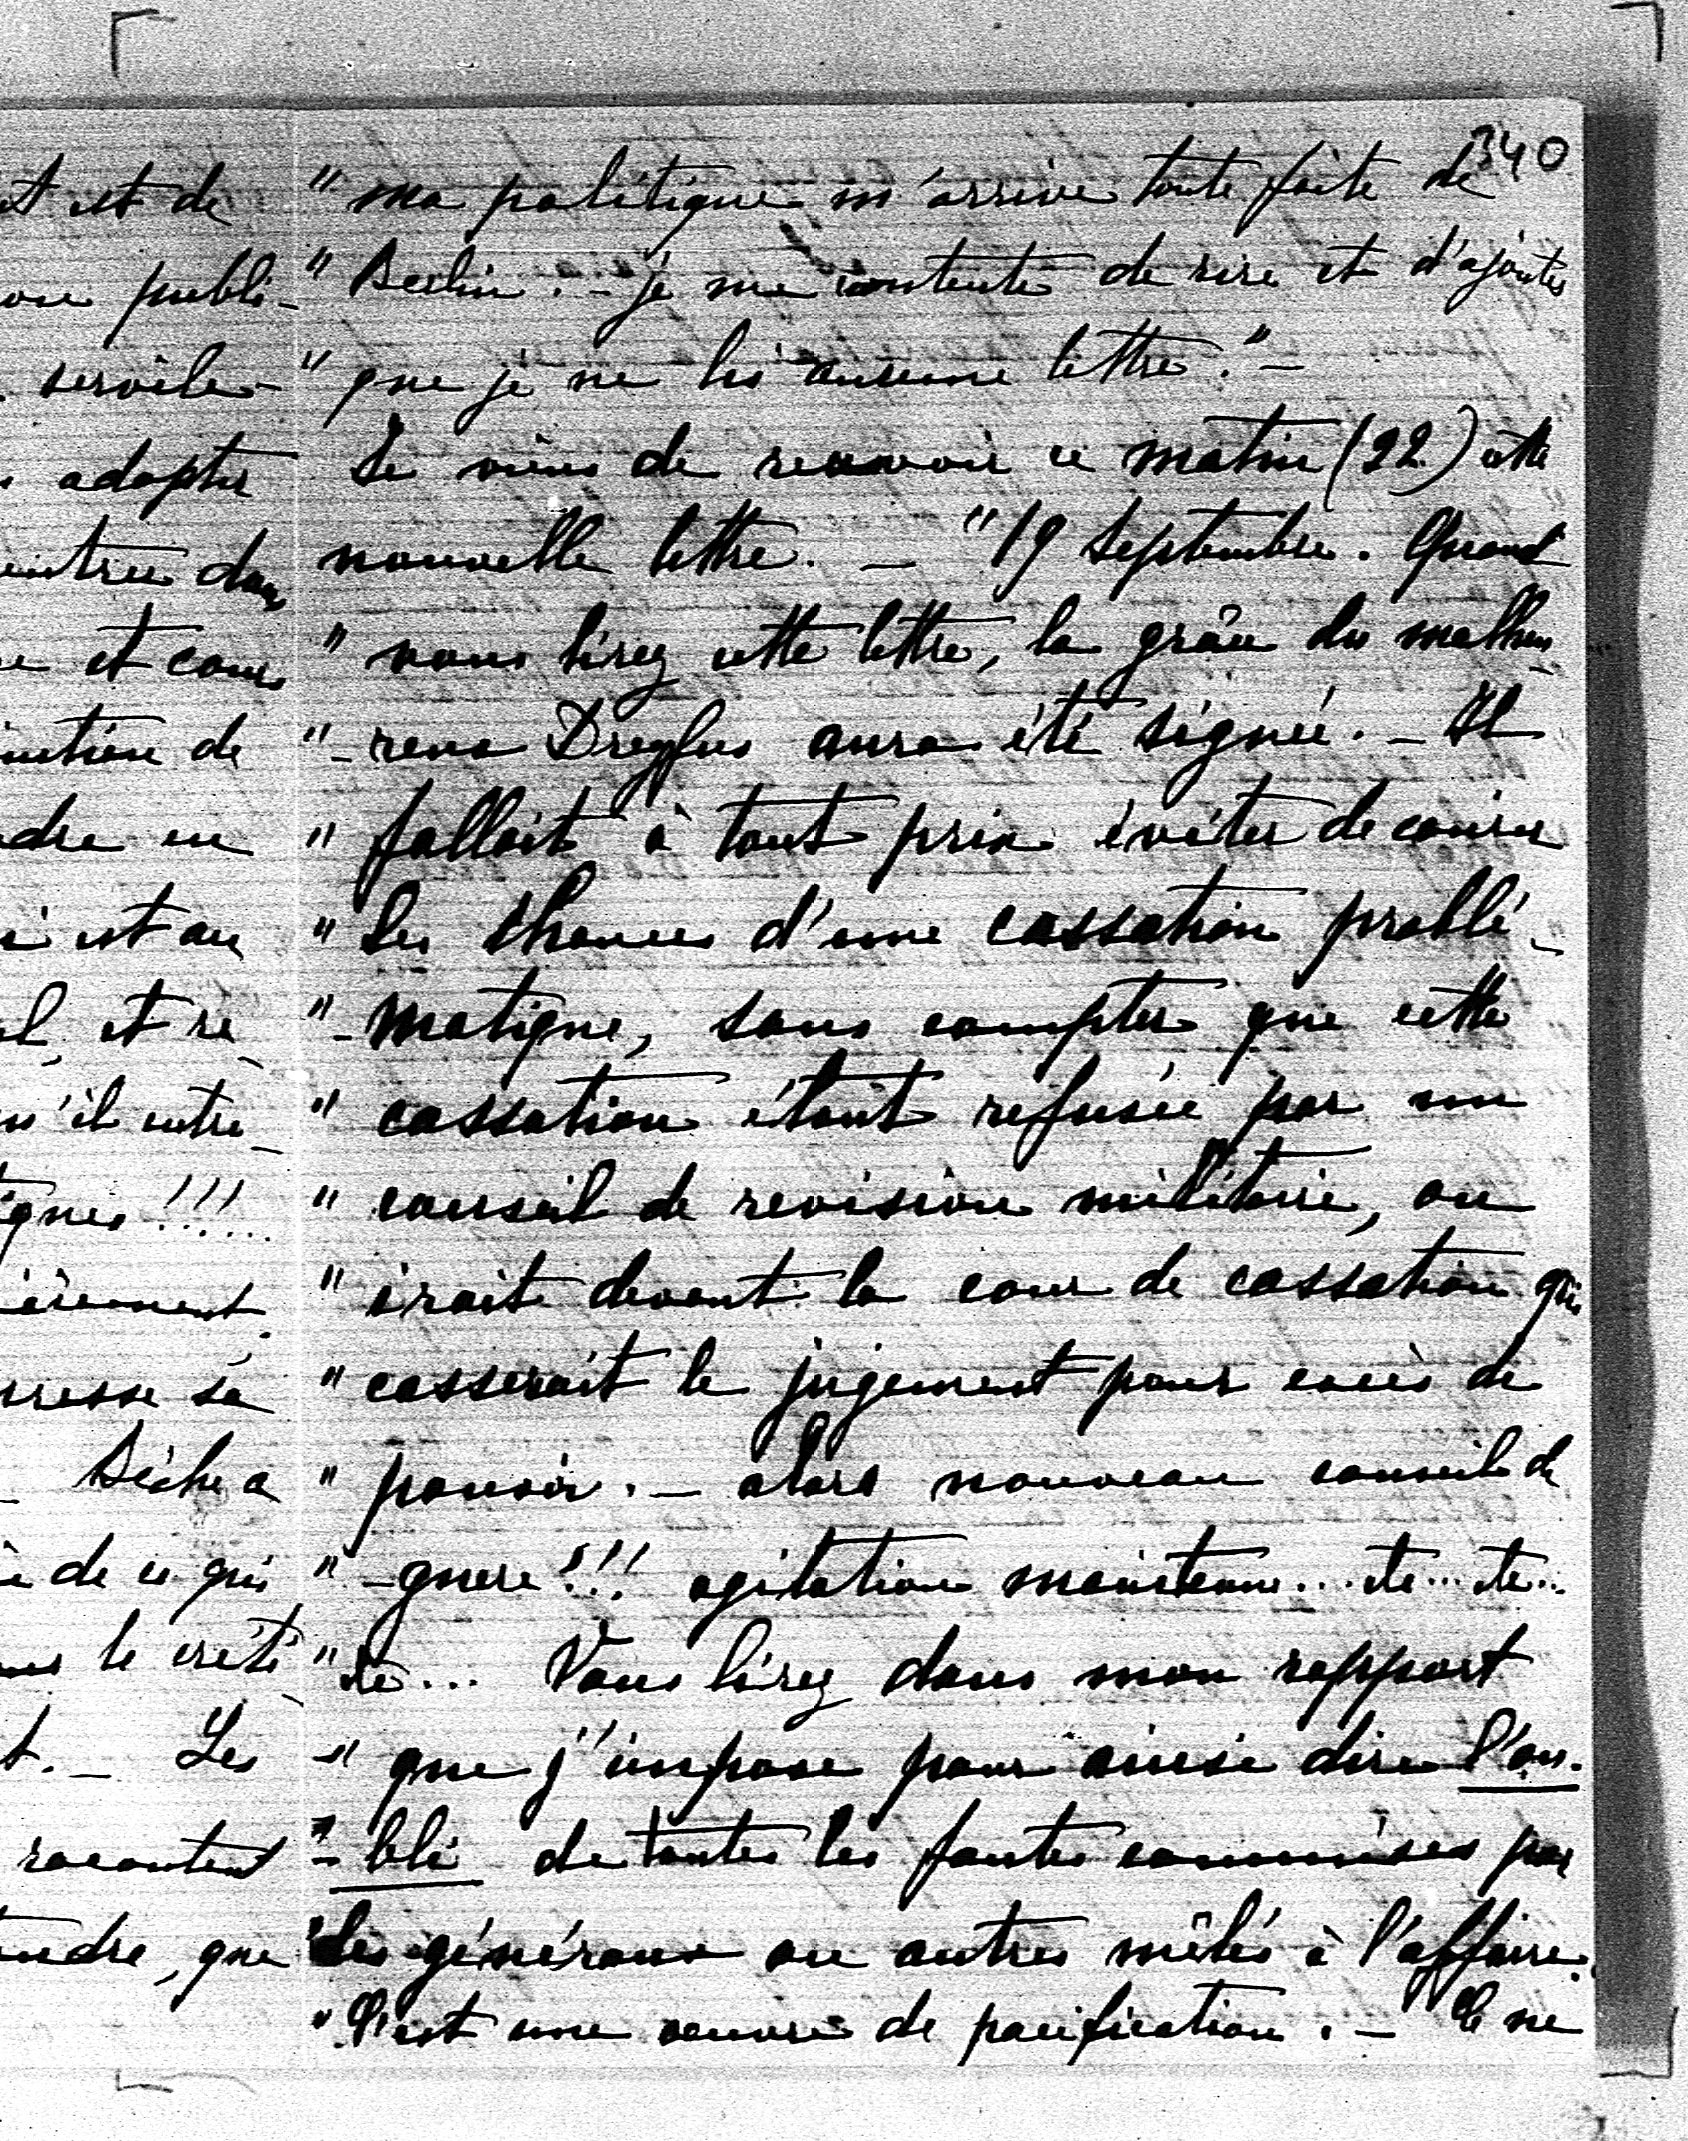 340
" ma politique m'arrive toute faite de
" Berlin. - je me contente de rire et d'ajouter
" que je ne lis aucune lettre." -
Je viens de recevoir ce matin (22) cette
nouvelle lettre. - "19 Septembre. Quand
" vous lirez cette lettre, la grâce du malheu
" - reux Dreyfus aura été signée. - Il
" fallait à tout prix éviter de courir
" les chances d'une cassation problé-
" - matique, sans compter que cette
" cassation étant refusée par un
" conseil de revision militaire, on
" irait devant la cour de cassation qui
" casserait le jugement pour excès de
" pouvoir. - alors nouveau conseil de
" - guerre!!! agitation maintenue... etc... etc...
" etc... Vous lirez dans mon rapport
" que j'impose pour ainsi dire l'ou-
" - bli de toutes les fautes commises par
" les généraux ou autres mêlés à l'affaire.
" C'est une oeuvre de pacification. - Ce ne
et est de
publi-
servile-
adopter
entrée dans
et cour
de
en
est au
et ré-
qu'il entre-
!!!...
presse sa
Sèche a
de ce qui
le
t. - Les
racontent
que